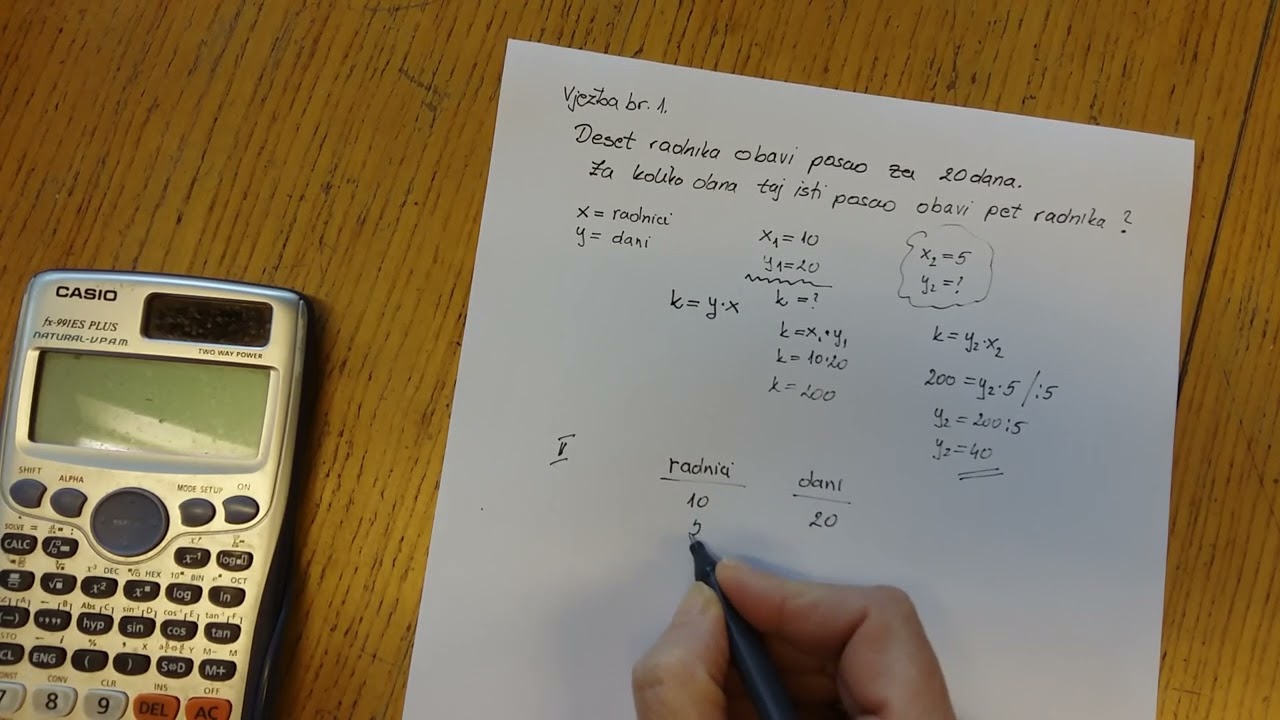 Vježba br. 1.
Deset radnika obavi posao za 20 dana.
Za koliko dana taj isti posao obavi pet radnika?
x = radnici
y = dani
x₁ = 10
y₁ = 20
k = ?
k = y·x
k = x₁·y₁
k = 10·20
k = 200
x₂ = 5
y₂ = ?
k = y₂·x₂
200 = y₂·5 /:5
y₂ = 200:5
y₂ = 40
radnici dani
10 20
5
CASIO
fx-991ES PLUS
NATURAL-V.P.A.M.
TWO WAY POWER
SHIFT ALPHA MODE SETUP ON
SOLVE =
CALC x⁻¹ log
x³ DEC HEX 10ˣ BIN eˣ OCT
√ x² log ln
Abs C sin⁻¹ D cos⁻¹ E tan⁻¹ F
(−) hyp sin cos tan
STO i % M− M
ENG ( ) S⇔D M+
CONV CLR INS OFF
7 8 9 DEL AC